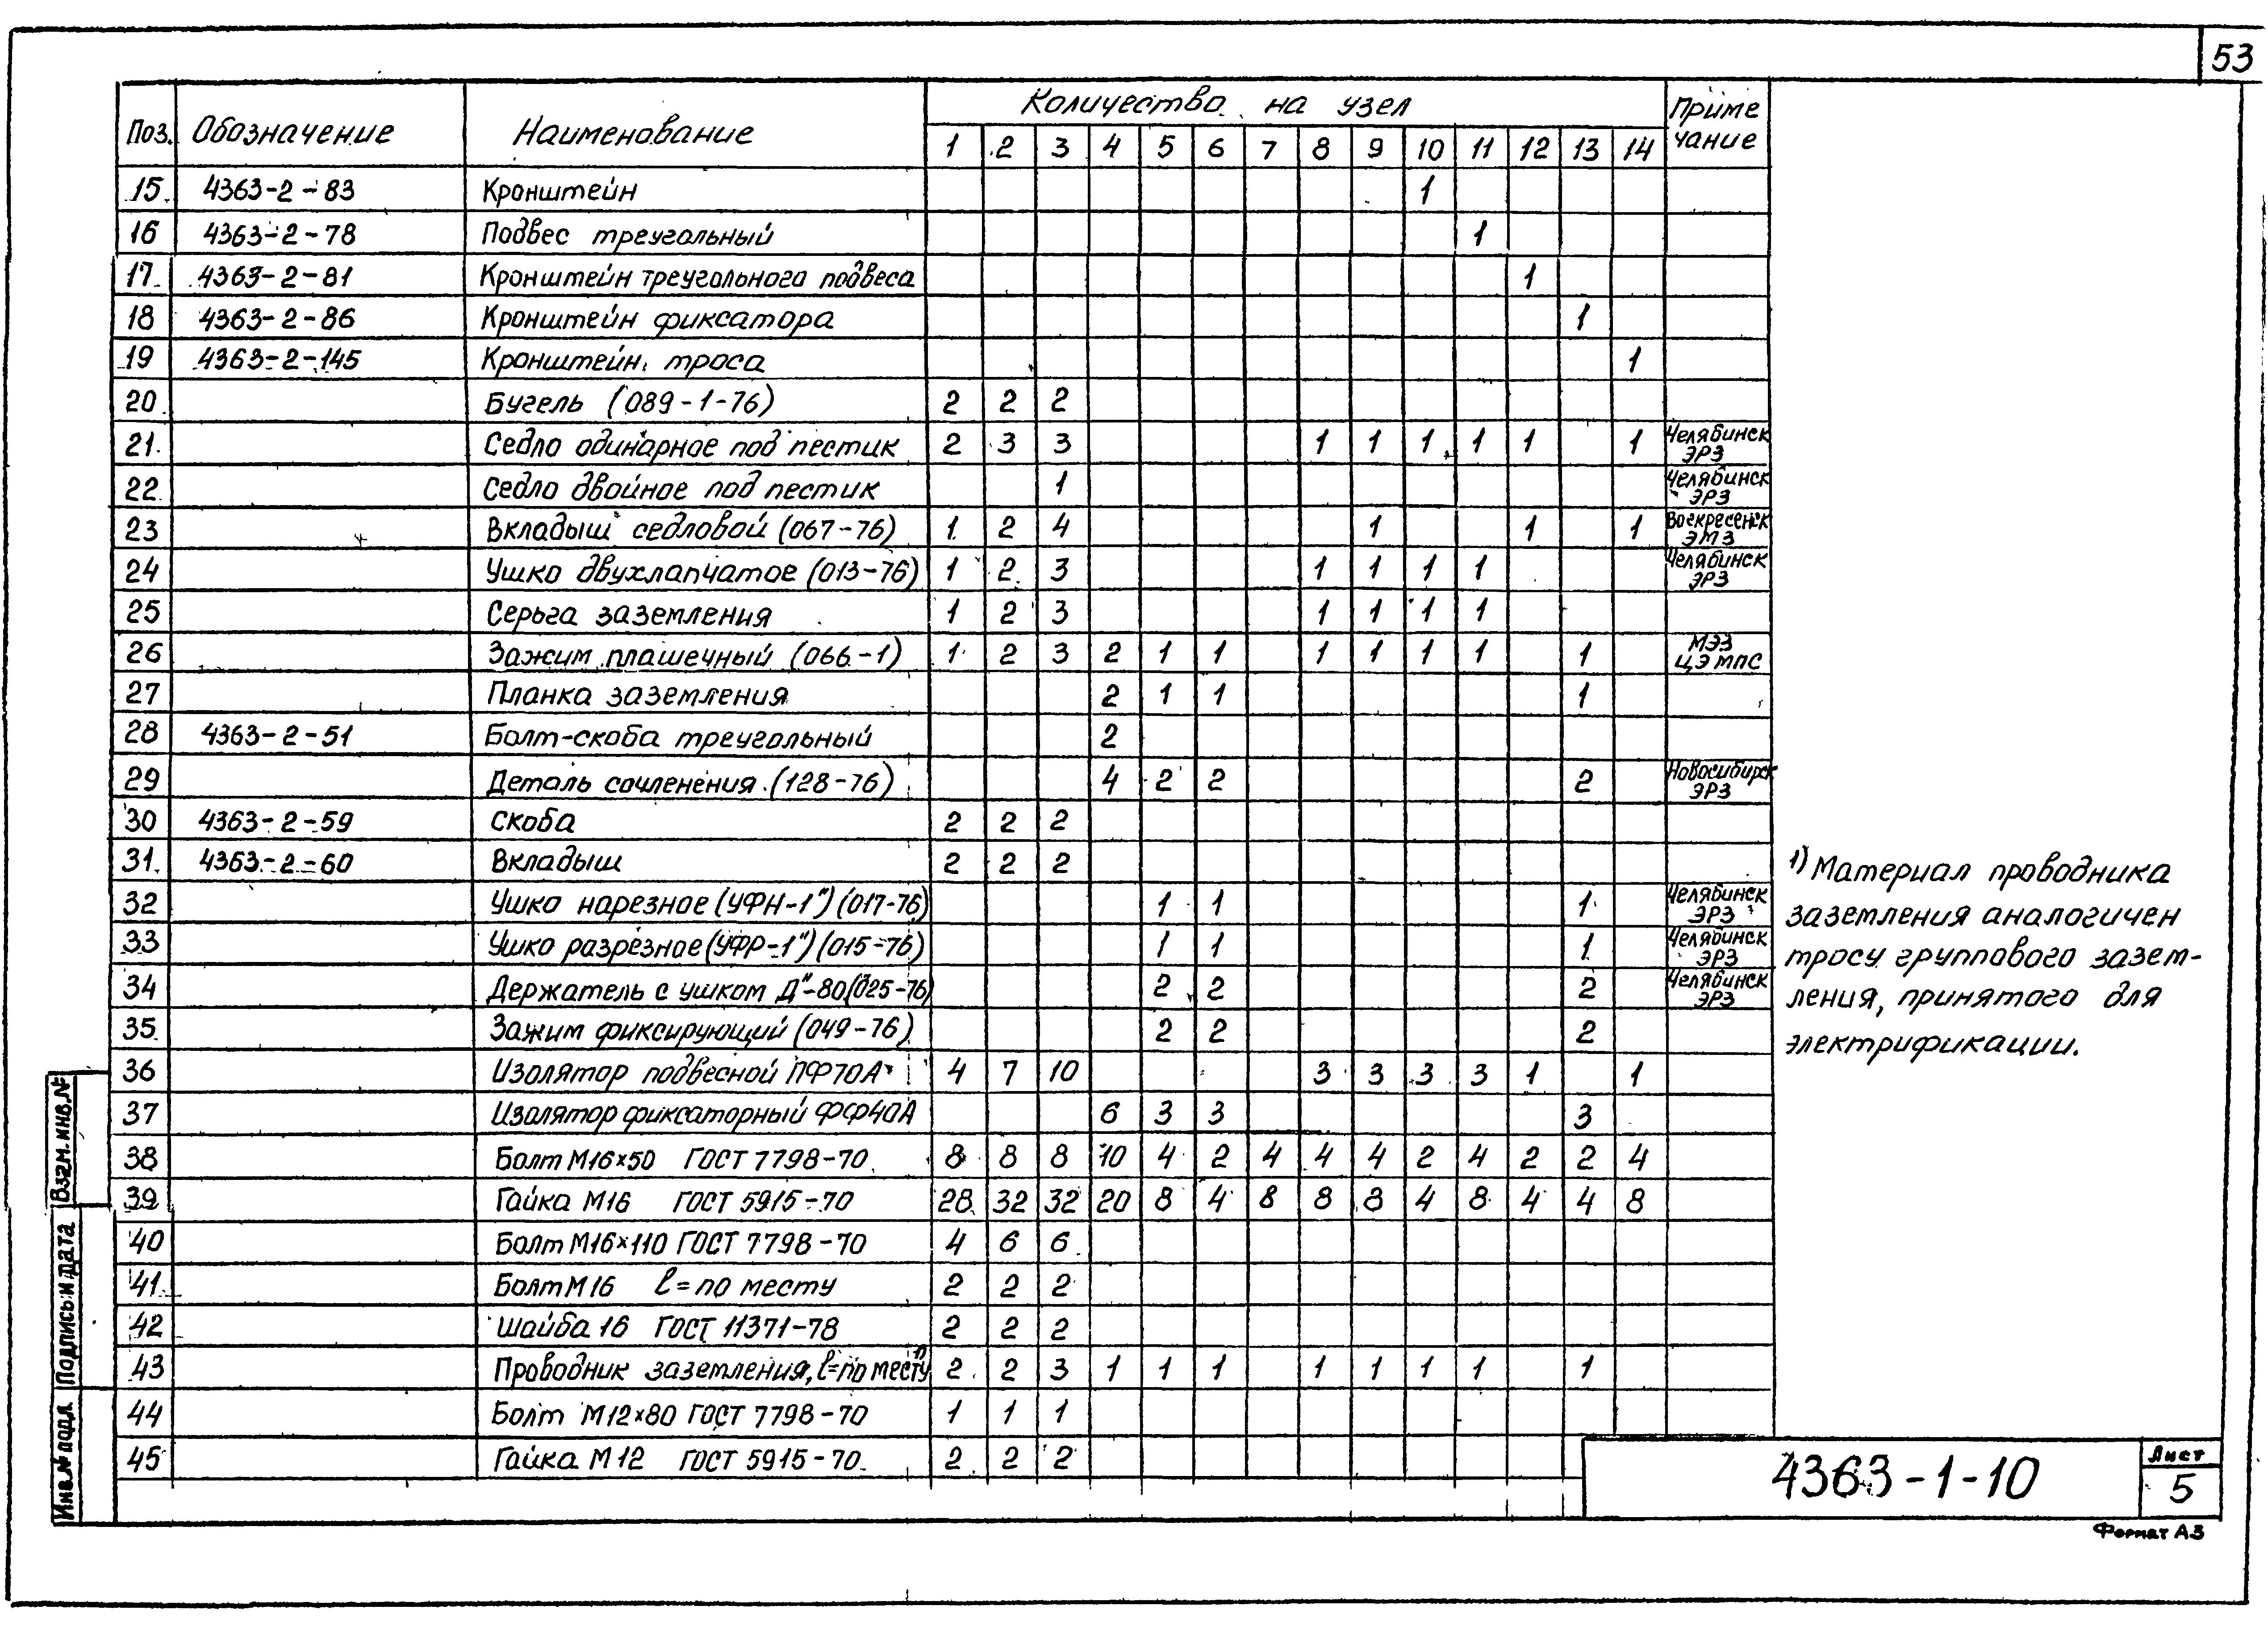 53
Поз. Обозначение Наименование Количество на узел Приме
чание
1 2 3 4 5 6 7 8 9 10 11 12 13 14
15 4363-2-83 Кронштейн 1
16 4363-2-78 Подвес треугольный 1
17 4363-2-81 Кронштейн треугольного подвеса 1
18 4363-2-86 Кронштейн фиксатора 1
19 4363-2-145 Кронштейн троса 1
20 Бугель (089-1-76) 2 2 2
21 Седло одинарное под пестик 2 3 3 1 1 1 1 1 1 Челябинск
ЭРЗ
22 Седло двойное под пестик 1 Челябинск
ЭРЗ
23 Вкладыш седловой (067-76) 1 2 4 1 1 1 Воскресенск
ЭМЗ
24 Ушко двухлапчатое (013-76) 1 2 3 1 1 1 1 Челябинск
ЭРЗ
25 Серьга заземления 1 2 3 1 1 1 1
26 Зажим плашечный (066-1) 1 2 3 2 1 1 1 1 1 1 1 МЭЗ
ЦЭ МПС
27 Планка заземления 2 1 1 1
28 4363-2-51 Болт-скоба треугольный 2
29 Деталь сочленения (128-76) 4 2 2 2 Новосибирск
ЭРЗ
30 4363-2-59 Скоба 2 2 2
31 4363-2-60 Вкладыш 2 2 2
32 Ушко нарезное (УФН-1") (017-76) 1 1 1 Челябинск
ЭРЗ
33 Ушко разрезное (УФР-1") (015-76) 1 1 1 Челябинск
ЭРЗ
34 Держатель с ушком Д"-80 (025-76) 2 2 2 Челябинск
ЭРЗ
35 Зажим фиксирующий (049-76) 2 2 2
36 Изолятор подвесной ПФ70А 4 7 10 3 3 3 3 1 1
37 Изолятор фиксаторный ФФ40А 6 3 3 3
38 Болт М16×50 ГОСТ 7798-70 8 8 8 10 4 2 4 4 4 2 4 2 2 4
39 Гайка М16 ГОСТ 5915-70 28 32 32 20 8 4 8 8 8 4 8 4 4 8
40 Болт М16×110 ГОСТ 7798-70 4 6 6
41 Болт М16 ℓ=по месту 2 2 2
42 Шайба 16 ГОСТ 11371-78 2 2 2
43 Проводник заземления, ℓ=по месту 1) 2 2 3 1 1 1 1 1 1 1 1
44 Болт М12×80 ГОСТ 7798-70 1 1 1
45 Гайка М12 ГОСТ 5915-70 2 2 2
1) Материал проводника
заземления аналогичен
тросу группового зазем-
ления, принятого для
электрификации.
Взам.инв.№
Подпись и дата
Инв.№ подл
4363-1-10
Лист
5
Формат А3